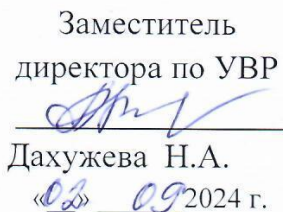 Заместитель
директора по УВР
Дахужева Н.А.
«02» 09 2024 г.